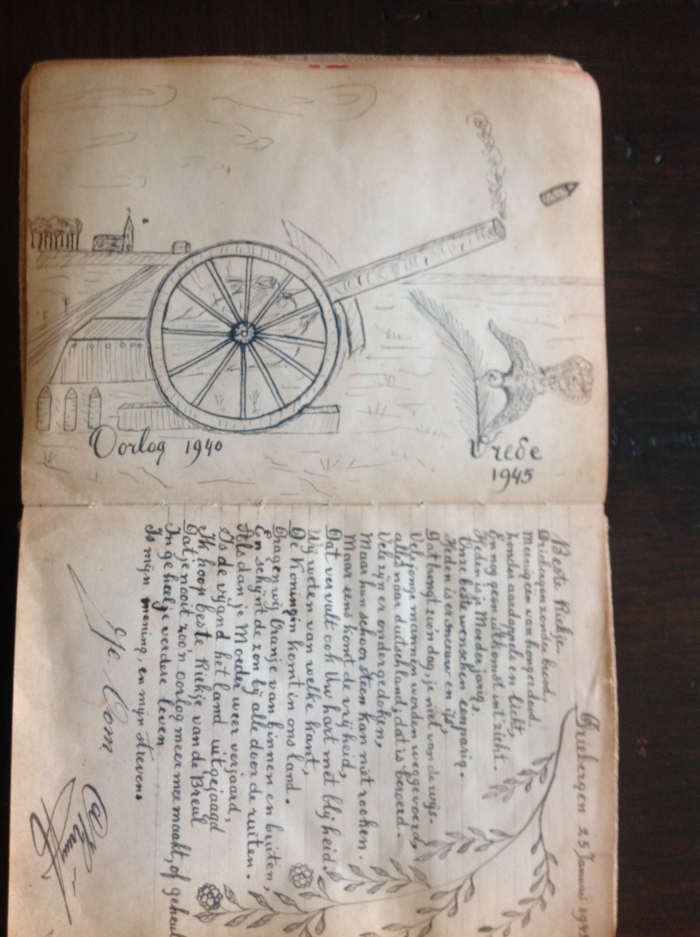 Oorlog 1940
Vrede
1945
Driebergen 25 Januari 194
Beste Riekje.
Driebergen zonder brood,
Menigeen van honger dood.
Zonder aardappels en licht,
En nog geen uitkomst in 't zicht.
Heden is je Moeder jarig,
Onze beste wenschen eenparig.
Heden is er sneeuw en ijs
Dat bungt zoo'n dag, je niet van de wijs.
Vele jonge mannen worden weggevoerd,
alles naar duitschland, dat is beroerd.
Vele zijn er ondergedoken,
Maar hun schoorsteen kan niet rooken.
Maar eens komt de vrijheid,
Dat vervult ook Uw hart met blijheid.
Wij weten van welke kant,
De Koningin komt in ons land.
Dragen wij Oranje van binnen en buiten,
En schijnt de zon bij alle door de ruiten.
Als dan je Moeder weer verjaard,
Is de vijand het land uitgejaagd
Ik hoop beste Riekje van de Breul
Dat je nooit zoo'n oorlog meer mee maakt, of geheul
In geheel je verdere leven
Is mijn mening, en mijn streven.
Je. Oom